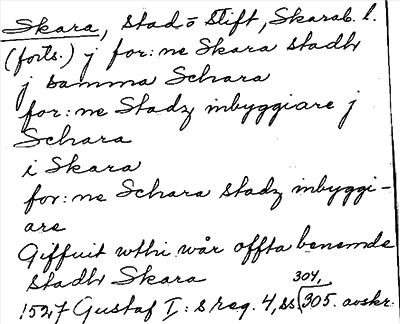 Skara, stad o stift, Skarab. l.
(forts.) j for:ne Skara stadh
j samma Schara
for:ne Stadz inbyggiare j
Schara
i Skara
for:ne Schara stadz inbyggi-
are
Giffuit wthi wår offta benemde
stadh Skara
304,
1527 Gustaf I:s reg. 4, ss 305. avskr.